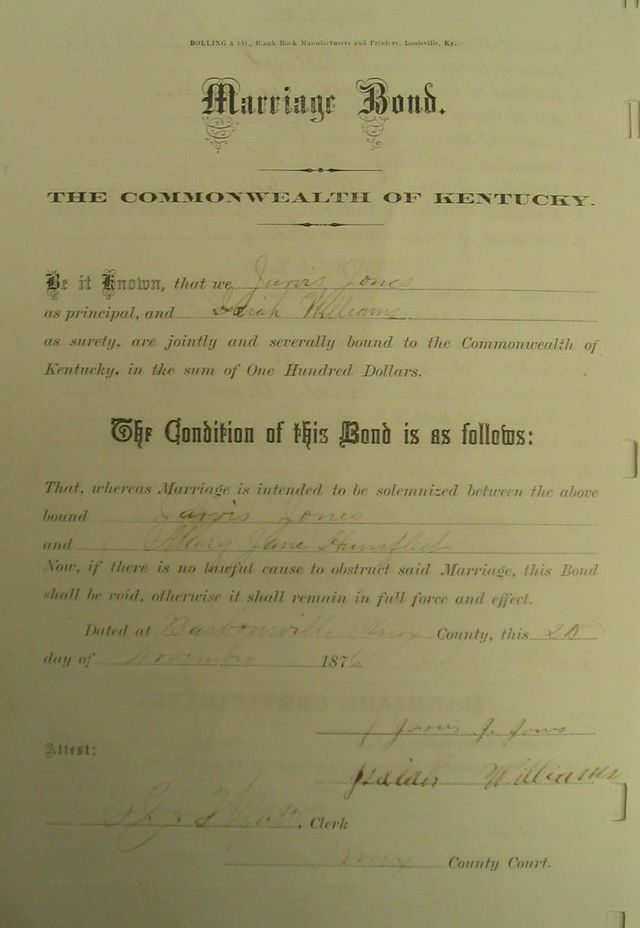 BOLLING & CO., Blank Book Manufacturers and Printers, Louisville, Ky.
Marriage Bond.
THE COMMONWEALTH OF KENTUCKY.
Be it Known, that we Jarvis Jones
as principal, and Isaiah Williams
as surety, are jointly and severally bound to the Commonwealth of
Kentucky, in the sum of One Hundred Dollars.
The Condition of this Bond is as follows:
That, whereas Marriage is intended to be solemnized between the above
bound Jarvis Jones
and Mary Jane
Now, if there is no lawful cause to obstruct said Marriage, this Bond
shall be void, otherwise it shall remain in full force and effect.
Dated at Barbourville Knox County, this
day of November 1876
Jones
Attest:
Isaiah Williams
, Clerk
Knox County Court.